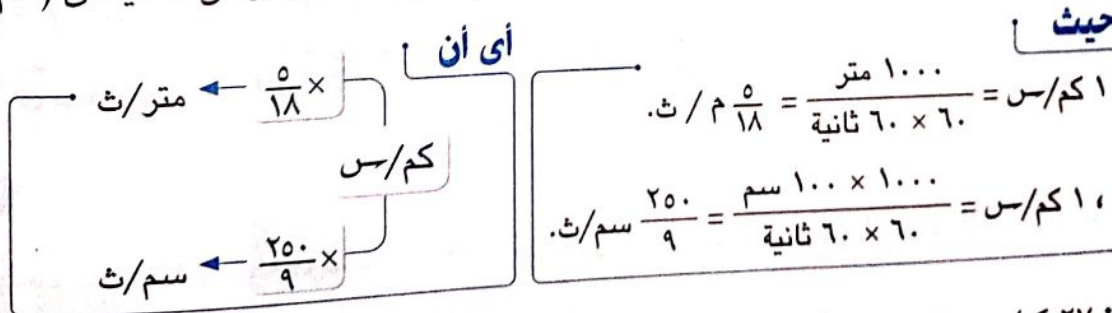 حيث
١ كم/س = ١٠٠٠ متر / ٦٠ × ٦٠ ثانية = ٥/١٨ م / ث.
، ١ كم/س = ١٠٠٠ × ١٠٠ سم / ٦٠ × ٦٠ ثانية = ٢٥٠/٩ سم/ث.
أى أن
× ٥/١٨ ← متر/ث
كم/س
× ٢٥٠/٩ ← سم/ث